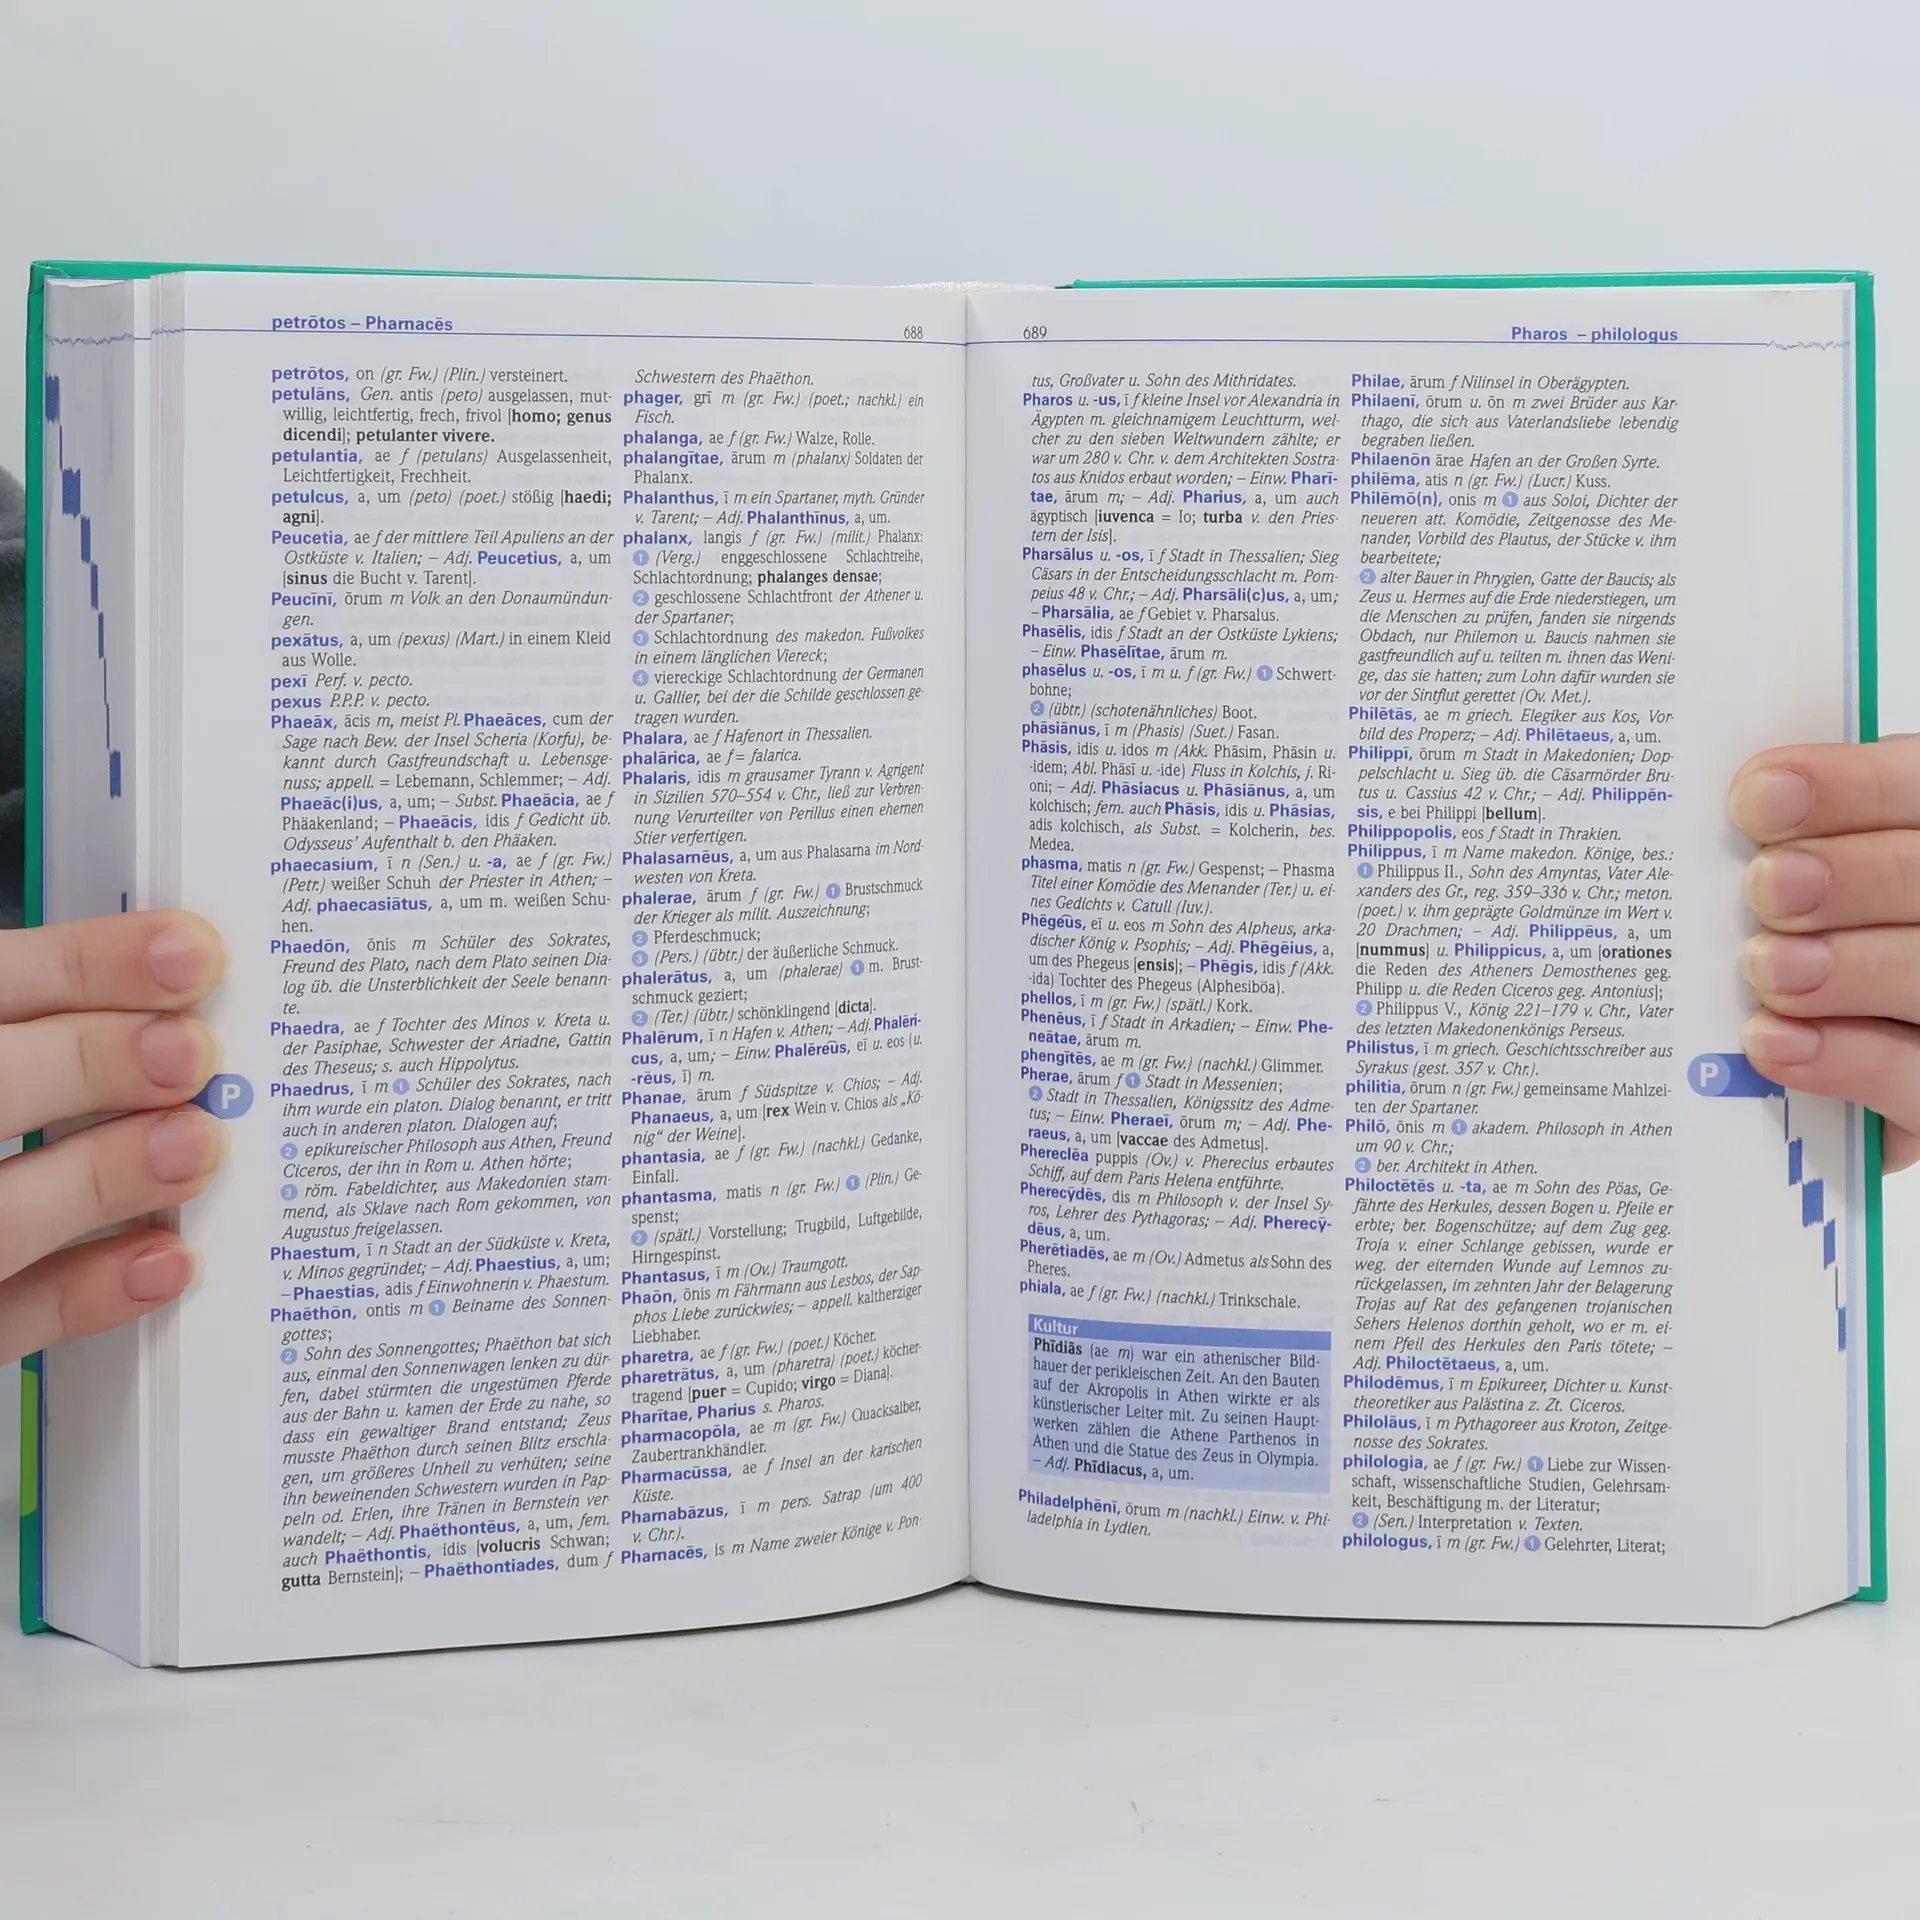 petrōtos – Pharnacēs
688
petrōtos, on (gr. Fw.) (Plin.) versteinert.
petulāns, Gen. antis (peto) ausgelassen, mut-
willig, leichtfertig, frech, frivol [homo; genus
dicendi]; petulanter vivere.
petulantia, ae f (petulans) Ausgelassenheit,
Leichtfertigkeit, Frechheit.
petulcus, a, um (peto) (poet.) stößig [haedi;
agni].
Peucetia, ae f der mittlere Teil Apuliens an der
Ostküste v. Italien; – Adj. Peucetius, a, um
[sinus die Bucht v. Tarent].
Peucīnī, ōrum m Volk an den Donaumündun-
gen.
pexātus, a, um (pexus) (Mart.) in einem Kleid
aus Wolle.
pexī Perf. v. pecto.
pexus P.P.P. v. pecto.
Phaeāx, ācis m, meist Pl. Phaeāces, cum der
Sage nach Bew. der Insel Scheria (Korfu), be-
kannt durch Gastfreundschaft u. Lebensge-
nuss; appell. = Lebemann, Schlemmer; – Adj.
Phaeāc(i)us, a, um; – Subst. Phaeācia, ae f
Phäakenland; – Phaeācis, idis f Gedicht üb.
Odysseus’ Aufenthalt b. den Phäaken.
phaecasium, ī n (Sen.) u. -a, ae f (gr. Fw.)
(Petr.) weißer Schuh der Priester in Athen; –
Adj. phaecasiātus, a, um m. weißen Schu-
hen.
Phaedōn, ōnis m Schüler des Sokrates,
Freund des Plato, nach dem Plato seinen Dia-
log üb. die Unsterblichkeit der Seele benann-
te.
Phaedra, ae f Tochter des Minos v. Kreta u.
der Pasiphae, Schwester der Ariadne, Gattin
des Theseus; s. auch Hippolytus.
Phaedrus, ī m 1 Schüler des Sokrates, nach
ihm wurde ein platon. Dialog benannt, er tritt
auch in anderen platon. Dialogen auf;
2 epikureischer Philosoph aus Athen, Freund
Ciceros, der ihn in Rom u. Athen hörte;
3 röm. Fabeldichter, aus Makedonien stam-
mend, als Sklave nach Rom gekommen, von
Augustus freigelassen.
Phaestum, ī n Stadt an der Südküste v. Kreta,
v. Minos gegründet; – Adj. Phaestius, a, um;
– Phaestias, adis f Einwohnerin v. Phaestum.
Phaëthōn, ontis m 1 Beiname des Sonnen-
gottes;
2 Sohn des Sonnengottes; Phaëthon bat sich
aus, einmal den Sonnenwagen lenken zu dür-
fen, dabei stürmten die ungestümen Pferde
aus der Bahn u. kamen der Erde zu nahe, so
dass ein gewaltiger Brand entstand; Zeus
musste Phaëthon durch seinen Blitz erschla-
gen, um größeres Unheil zu verhüten; seine
ihn beweinenden Schwestern wurden in Pap-
peln od. Erlen, ihre Tränen in Bernstein ver-
wandelt; – Adj. Phaëthontēus, a, um, fem.
auch Phaëthontis, idis [volucris Schwan;
gutta Bernstein]; – Phaëthontiades, dum f
Schwestern des Phaëthon.
phager, grī m (gr. Fw.) (poet.; nachkl.) ein
Fisch.
phalanga, ae f (gr. Fw.) Walze, Rolle.
phalangītae, ārum m (phalanx) Soldaten der
Phalanx.
Phalanthus, ī m ein Spartaner, myth. Gründer
v. Tarent; – Adj. Phalanthīnus, a, um.
phalanx, langis f (gr. Fw.) (milit.) Phalanx:
1 (Verg.) enggeschlossene Schlachtreihe,
Schlachtordnung; phalanges densae;
2 geschlossene Schlachtfront der Athener u.
der Spartaner;
3 Schlachtordnung des makedon. Fußvolkes
in einem länglichen Viereck;
4 viereckige Schlachtordnung der Germanen
u. Gallier, bei der die Schilde geschlossen ge-
tragen wurden.
Phalara, ae f Hafenort in Thessalien.
phalārica, ae f = falarica.
Phalaris, idis m grausamer Tyrann v. Agrigent
in Sizilien 570–554 v. Chr., ließ zur Verbren-
nung Verurteilter von Perillus einen ehernen
Stier verfertigen.
Phalasarnēus, a, um aus Phalasarna im Nord-
westen von Kreta.
phalerae, ārum f (gr. Fw.) 1 Brustschmuck
der Krieger als milit. Auszeichnung;
2 Pferdeschmuck;
3 (Pers.) (übtr.) der äußerliche Schmuck.
phalerātus, a, um (phalerae) 1 m. Brust-
schmuck geziert;
2 (Ter.) (übtr.) schönklingend [dicta].
Phalērum, ī n Hafen v. Athen; – Adj. Phalēri-
cus, a, um; – Einw. Phalēreūs, eī u. eos (u.
-rēus, ī) m.
Phanae, ārum f Südspitze v. Chios; – Adj.
Phanaeus, a, um [rex Wein v. Chios als „Kö-
nig“ der Weine].
phantasia, ae f (gr. Fw.) (nachkl.) Gedanke,
Einfall.
phantasma, matis n (gr. Fw.) 1 (Plin.) Ge-
spenst;
2 (spätl.) Vorstellung; Trugbild, Luftgebilde,
Hirngespinst.
Phantasus, ī m (Ov.) Traumgott.
Phaōn, ōnis m Fährmann aus Lesbos, der Sap-
phos Liebe zurückwies; – appell. kaltherziger
Liebhaber.
pharetra, ae f (gr. Fw.) (poet.) Köcher.
pharetrātus, a, um (pharetra) (poet.) köcher-
tragend [puer = Cupido; virgo = Diana].
Pharītae, Pharius s. Pharos.
pharmacopōla, ae m (gr. Fw.) Quacksalber,
Zaubertrankhändler.
Pharmacūssa, ae f Insel an der karischen
Küste.
Pharnabāzus, ī m pers. Satrap (um 400
v. Chr.).
Pharnacēs, is m Name zweier Könige v. Pon-
P
689
Pharos – philologus
tus, Großvater u. Sohn des Mithridates.
Pharos u. -us, ī f kleine Insel vor Alexandria in
Ägypten m. gleichnamigem Leuchtturm, wel-
cher zu den sieben Weltwundern zählte; er
war um 280 v. Chr. v. dem Architekten Sostra-
tos aus Knidos erbaut worden; – Einw. Pharī-
tae, ārum m; – Adj. Pharius, a, um auch
ägyptisch [iuvenca = Io; turba v. den Pries-
tern der Isis].
Pharsālus u. -os, ī f Stadt in Thessalien; Sieg
Cäsars in der Entscheidungsschlacht m. Pom-
peius 48 v. Chr.; – Adj. Pharsāli(c)us, a, um;
– Pharsālia, ae f Gebiet v. Pharsalus.
Phasēlis, idis f Stadt an der Ostküste Lykiens;
– Einw. Phasēlītae, ārum m.
phasēlus u. -os, ī m u. f (gr. Fw.) 1 Schwert-
bohne;
2 (übtr.) (schotenähnliches) Boot.
phāsiānus, ī m (Phasis) (Suet.) Fasan.
Phāsis, idis u. idos m (Akk. Phāsim, Phāsin u.
-idem; Abl. Phāsī u. -ide) Fluss in Kolchis, j. Ri-
oni; – Adj. Phāsiacus u. Phāsiānus, a, um
kolchisch; fem. auch Phāsis, idis u. Phāsias,
adis kolchisch, als Subst. = Kolcherin, bes.
Medea.
phasma, matis n (gr. Fw.) Gespenst; – Phasma
Titel einer Komödie des Menander (Ter.) u. ei-
nes Gedichts v. Catull (Iuv.).
Phēgeūs, eī u. eos m Sohn des Alpheus, arka-
discher König v. Psophis; – Adj. Phēgēius, a,
um des Phegeus [ensis]; – Phēgis, idis f (Akk.
-ida) Tochter des Phegeus (Alphesiböa).
phellos, ī m (gr. Fw.) (spätl.) Kork.
Phenēus, ī f Stadt in Arkadien; – Einw. Phe-
neātae, ārum m.
phengītēs, ae m (gr. Fw.) (nachkl.) Glimmer.
Pherae, ārum f 1 Stadt in Messenien;
2 Stadt in Thessalien, Königssitz des Adme-
tus; – Einw. Pheraeī, ōrum m; – Adj. Phe-
raeus, a, um [vaccae des Admetus].
Phereclēa puppis (Ov.) v. Phereclus erbautes
Schiff, auf dem Paris Helena entführte.
Pherecȳdēs, dis m Philosoph v. der Insel Sy-
ros, Lehrer des Pythagoras; – Adj. Pherecȳ-
dēus, a, um.
Pherētiadēs, ae m (Ov.) Admetus als Sohn des
Pheres.
phiala, ae f (gr. Fw.) (nachkl.) Trinkschale.
Kultur
Phīdiās (ae m) war ein athenischer Bild-
hauer der perikleischen Zeit. An den Bauten
auf der Akropolis in Athen wirkte er als
künstlerischer Leiter mit. Zu seinen Haupt-
werken zählen die Athene Parthenos in
Athen und die Statue des Zeus in Olympia.
– Adj. Phīdiacus, a, um.
Philadelphēnī, ōrum m (nachkl.) Einw. v. Phi-
ladelphia in Lydien.
Philae, ārum f Nilinsel in Oberägypten.
Philaenī, ōrum u. ōn m zwei Brüder aus Kar-
thago, die sich aus Vaterlandsliebe lebendig
begraben ließen.
Philaenōn ārae Hafen an der Großen Syrte.
philēma, atis n (gr. Fw.) (Lucr.) Kuss.
Philēmō(n), onis m 1 aus Soloi, Dichter der
neueren att. Komödie, Zeitgenosse des Me-
nander, Vorbild des Plautus, der Stücke v. ihm
bearbeitete;
2 alter Bauer in Phrygien, Gatte der Baucis; als
Zeus u. Hermes auf die Erde niederstiegen, um
die Menschen zu prüfen, fanden sie nirgends
Obdach, nur Philemon u. Baucis nahmen sie
gastfreundlich auf u. teilten m. ihnen das Weni-
ge, das sie hatten; zum Lohn dafür wurden sie
vor der Sintflut gerettet (Ov. Met.).
Philētās, ae m griech. Elegiker aus Kos, Vor-
bild des Properz; – Adj. Philētaeus, a, um.
Philippī, ōrum m Stadt in Makedonien; Dop-
pelschlacht u. Sieg üb. die Cäsarmörder Bru-
tus u. Cassius 42 v. Chr.; – Adj. Philippēn-
sis, e bei Philippi [bellum].
Philippopolis, eos f Stadt in Thrakien.
Philippus, ī m Name makedon. Könige, bes.:
1 Philippus II., Sohn des Amyntas, Vater Ale-
xanders des Gr., reg. 359–336 v. Chr.; meton.
(poet.) v. ihm geprägte Goldmünze im Wert v.
20 Drachmen; – Adj. Philippēus, a, um
[nummus] u. Philippicus, a, um [orationes
die Reden des Atheners Demosthenes geg.
Philipp u. die Reden Ciceros geg. Antonius];
2 Philippus V., König 221–179 v. Chr., Vater
des letzten Makedonenkönigs Perseus.
Philistus, ī m griech. Geschichtsschreiber aus
Syrakus (gest. 357 v. Chr.).
philitia, ōrum n (gr. Fw.) gemeinsame Mahlzei-
ten der Spartaner.
Philō, ōnis m 1 akadem. Philosoph in Athen
um 90 v. Chr.;
2 ber. Architekt in Athen.
Philoctētēs u. -ta, ae m Sohn des Pöas, Ge-
fährte des Herkules, dessen Bogen u. Pfeile er
erbte; ber. Bogenschütze; auf dem Zug geg.
Troja v. einer Schlange gebissen, wurde er
weg. der eiternden Wunde auf Lemnos zu-
rückgelassen, im zehnten Jahr der Belagerung
Trojas auf Rat des gefangenen trojanischen
Sehers Helenos dorthin geholt, wo er m. ei-
nem Pfeil des Herkules den Paris tötete; –
Adj. Philoctētaeus, a, um.
Philodēmus, ī m Epikureer, Dichter u. Kunst-
theoretiker aus Palästina z. Zt. Ciceros.
Philolāus, ī m Pythagoreer aus Kroton, Zeitge-
nosse des Sokrates.
philologia, ae f (gr. Fw.) 1 Liebe zur Wissen-
schaft, wissenschaftliche Studien, Gelehrsam-
keit, Beschäftigung m. der Literatur;
2 (Sen.) Interpretation v. Texten.
philologus, ī m (gr. Fw.) 1 Gelehrter, Literat;
P